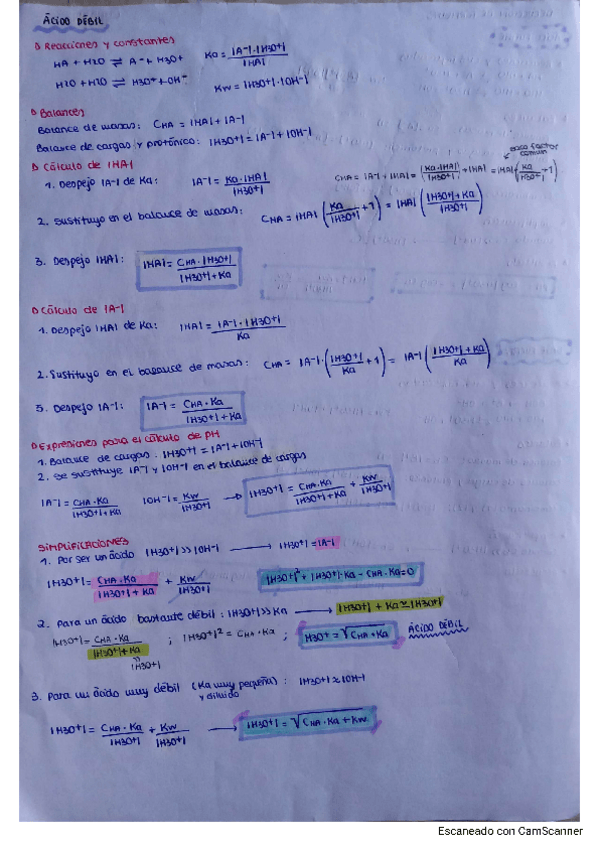 ÁCIDO DÉBIL
Reacciones y constantes
HA + H2O ⇌ A- + H3O+   Ka = |A-|·|H3O+| / |HA|
H2O + H2O ⇌ H3O+ + OH-   Kw = |H3O+|·|OH-|
Balances
Balance de masas: CHA = |HA| + |A-|
Balance de cargas y protónico: |H3O+| = |A-| + |OH-|
saco factor común
Cálculo de |HA|
1. Despejo |A-| de Ka: |A-| = Ka·|HA| / |H3O+|   CHA = |A-| + |HA| = (Ka·|HA| / |H3O+|) + |HA| = |HA| (Ka / |H3O+| + 1)
2. Sustituyo en el balance de masas: CHA = |HA| (Ka / |H3O+| + 1) = |HA| (|H3O+| + Ka / |H3O+|)
3. Despejo |HA|: |HA| = CHA·|H3O+| / |H3O+| + Ka
Cálculo de |A-|
1. Despejo |HA| de Ka: |HA| = |A-|·|H3O+| / Ka
2. Sustituyo en el balance de masas: CHA = |A-|·(|H3O+| / Ka + 1) = |A-| (|H3O+| + Ka / Ka)
3. Despejo |A-|: |A-| = CHA·Ka / |H3O+| + Ka
Expresiones para el cálculo de pH
1. Balance de cargas: |H3O+| = |A-| + |OH-|
2. Se sustituye |A-| y |OH-| en el balance de cargas
|A-| = CHA·Ka / |H3O+| + Ka   |OH-| = Kw / |H3O+| → |H3O+| = CHA·Ka / |H3O+| + Ka + Kw / |H3O+|
SIMPLIFICACIONES
1. Por ser un ácido |H3O+| >> |OH-| → |H3O+| = |A-|
|H3O+| = CHA·Ka / |H3O+| + Ka + Kw / |H3O+|   |H3O+|² + |H3O+|·Ka - CHA·Ka = 0
2. Para un ácido bastante débil: |H3O+| >> Ka → |H3O+| + Ka ≃ |H3O+|
|H3O+| = CHA·Ka / |H3O+| + Ka ; |H3O+|² = CHA·Ka ; H3O+ = √CHA·Ka   ÁCIDO DÉBIL
|H3O+|
3. Para un ácido muy débil (Ka muy pequeña) y diluido : |H3O+| ≈ |OH-|
|H3O+| = CHA·Ka / |H3O+| + Kw / |H3O+| → |H3O+| = √CHA·Ka + Kw
Escaneado con CamScanner